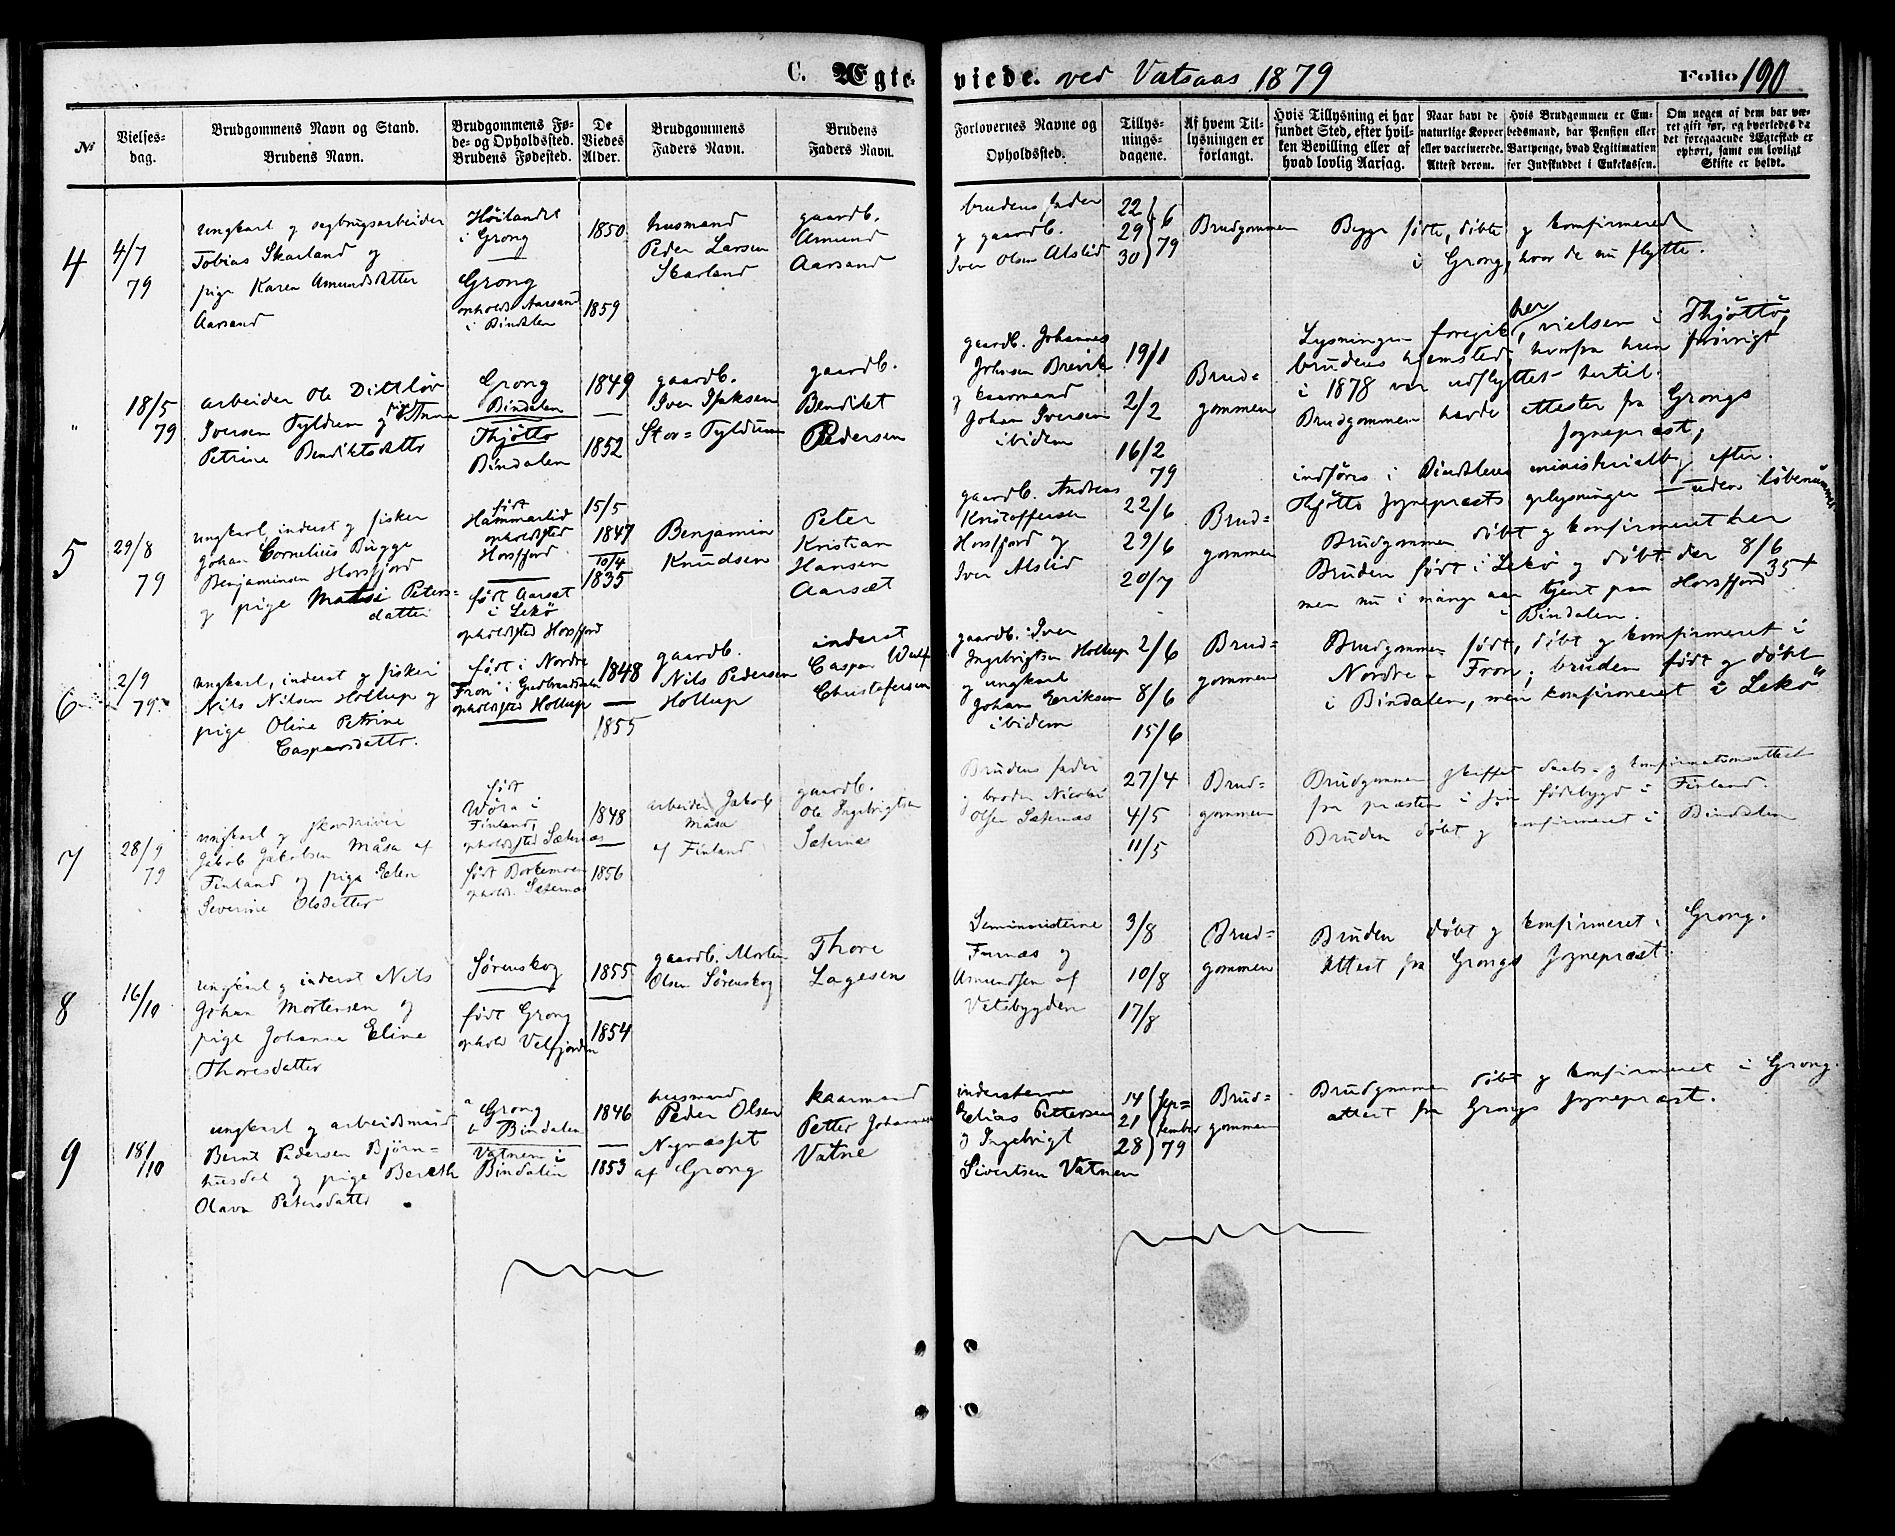 C. Ægte-
viede. ved Vatsaas 1879
Folio 190
№
Vielses-
dag.
Brudgommens Navn og Stand.
Brudens Navn.
Brudgommens Fø-
de- og Opholdssted.
Brudens Fødested.
De
Viedes
Alder.
Brudgommens
Faders Navn.
Brudens
Faders Navn.
Forlovernes Navne og
Opholdssted.
Tillys-
nings-
dagene.
Af hvem Til-
lysningen er
forlangt.
Hvis Tillysning ei har
fundet Sted, efter hvil-
ken Bevilling eller af
hvad lovlig Aarsag.
Naar havt de
naturlige Kopper
eller vaccinerede.
Attest derom.
Hvis Brudgommen er Em-
bedsmand, har Pension eller
Vartpenge, hvad Legitimation
for Indskuddet i Enkekassen.
Om nogen af dem har væ-
ret gift før, og hvorledes da
det foregaaende Ægteskab er
ophørt, samt om lovligt
Skifte er holdt.
4
4/7
79
ungkarl og sagbrugsarbeider
Tobias Skarland og
pige Karen Amundsdatter
Aarsand
Höilandet
i Grong
Grong
opholds. Aarsand
i Bindalen
1850
1859
husmand
Peder Larsen
Skarland
gaardb.
Amund
Aarsand
brudens fader
og gaardb.
Iver Olsen Alstad
22
29
30
6
79
Brudgommen
Begge födte, döbte og konfirmered
i Grong, hvor de nu flytte.
"
18/5
79
arbeider Ole Dittlöv
Iversen Tyldum og pige Anna
Petrine Bendiktsdatter
Grong
Bindalen
Thjöttö
Bindalen
1849
1852
gaardb.
Iver Isaksen
Stor-Tyldum
gaardb.
Bendikt
Pedersen
gaardb. Johannes
Johnsen Brevik
og kaarmand
Johan Iversen
ibidem
19/1
2/2
16/2
79
Brud-
gommen
Lysningen foregik her, vielsen i Thjöttö,
brudens hjemsted, hvorfra hun forövrigt
i 1878 var udflyttet hertil.
Brudgommen havde attester fra Grongs
sognepræst;
indföres i Bindalens ministerialbog efter
Thjöttö sognepræsts oplysninger — uden löbenummer
5
29/8
79
ungkarl, inderst og fisker
Johan Cornelius Bugge
Benjaminsen Horsfjord
og pige Matsi Peters-
datter
født
Hammarlid
opholdssted
Horsfjord
født Aarsæt
i Lekö
opholdssted Horsfjord
15/5
1847
10/4
1835
Benjamin
Knudsen
Peter
Kristian
Hansen
Aarsæt
gaardb. Andreas
Kristoffersen
Horsfjord og
Iver Alstad
22/6
29/6
20/7
Brud-
gommen
Brudgommen döbt og konfirmeret her
Bruden födt i Lekö og döbt der 8/6
35 +
men nu i mange aar tjent paa Horsfjord
i Bindalen.
6
2/9
79
ungkarl, inderst og fisker
Nils Nilsen Hollup og
pige Oline Petrine
Caspersdatter.
født i Nordre
Fron i Gudbrandsdalen
opholdssted Hollup
1848
1855
gaardb.
Nils Pedersen
Hollup
inderst
Caspar Wulf
Christofersen
gaardb. Iver
Ingebrigtsen Hollup
og ungkarl
Johan Eriksen
ibidem
2/6
8/6
15/6
Brud-
gommen
Brudgommen födt, döbt og konfirmeret i
Nordre Fron; bruden födt og döbt
i Bindalen, men konfirmeret i Lekö
7
28/9
79
ungkarl og skovdriver
Jakob Jakobsen Måsa af
Finland og pige Elen
Severine Olsdatter
født
Wöra i
Finland,
opholdssted Sæternæs
født Borkemoen
opholds. Sæternæs
1848
1856
arbeider Jakob
Måsa
af Finland
gaardb.
Ole Ingebrigtsen
Sæternæs
Brudens fader
og broder Nicolai
Olsen Sæternæs
27/4
4/5
11/5
Brud-
gommen
Brudgommen skaffet daabs- og konfirmationsattest
fra præsten i sin fødebygd i Finland.
Bruden döbt og konfirmeret i Bindalen
8
16/10
ungkarl og inderst Nils
Johan Mortensen og
pige Johanna Eline
Thoresdatter
Sørenskog
født Grong
ophold Velfjorden
1855
1854
gaardb. Morten
Olsen Sørenskog
Thore
Lagesen
Seminaristerne
Furnæs og
Amundsen af
Vatsbygden
3/8
10/8
17/8
Brud-
gommen
Bruden døbt og konfirmeret i Grong.
Attest fra Grongs Sognepræst.
9
18/10
ungkarl og arbeidsmand
Bernt Pedersen Bjørn-
husdal og pige Bereth
Olava Petersdatter
a Grong
b Bindalen
Vatnen i
Bindalen
1846
1853
husmand
Peder Olsen
Nynæsset
af Grong
kaarmand
Petter Johannesen
Vatne
inderstene
Elias Pettersen
og Ingebrigt
Sivertsen Vatnen
14
21
28
Sep-
tember
79
Brud-
gommen
Brudgommen döbt og konfirmeret i Grong.
attest fra Grongs sognepræst.